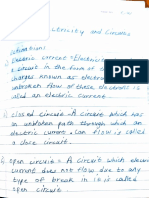 and Circuits
Electric current = Electric
a circuit in the form of
charges known as electron
unbroken flow of these electrons is
called an electric current.
Closed circuit - A circuit which has
an unbroken path through which an
electric current can flow is called
a close circuit.
Open circuit = A circuit which electric
current does not flow due to any
type of break in is is called
open circuit.